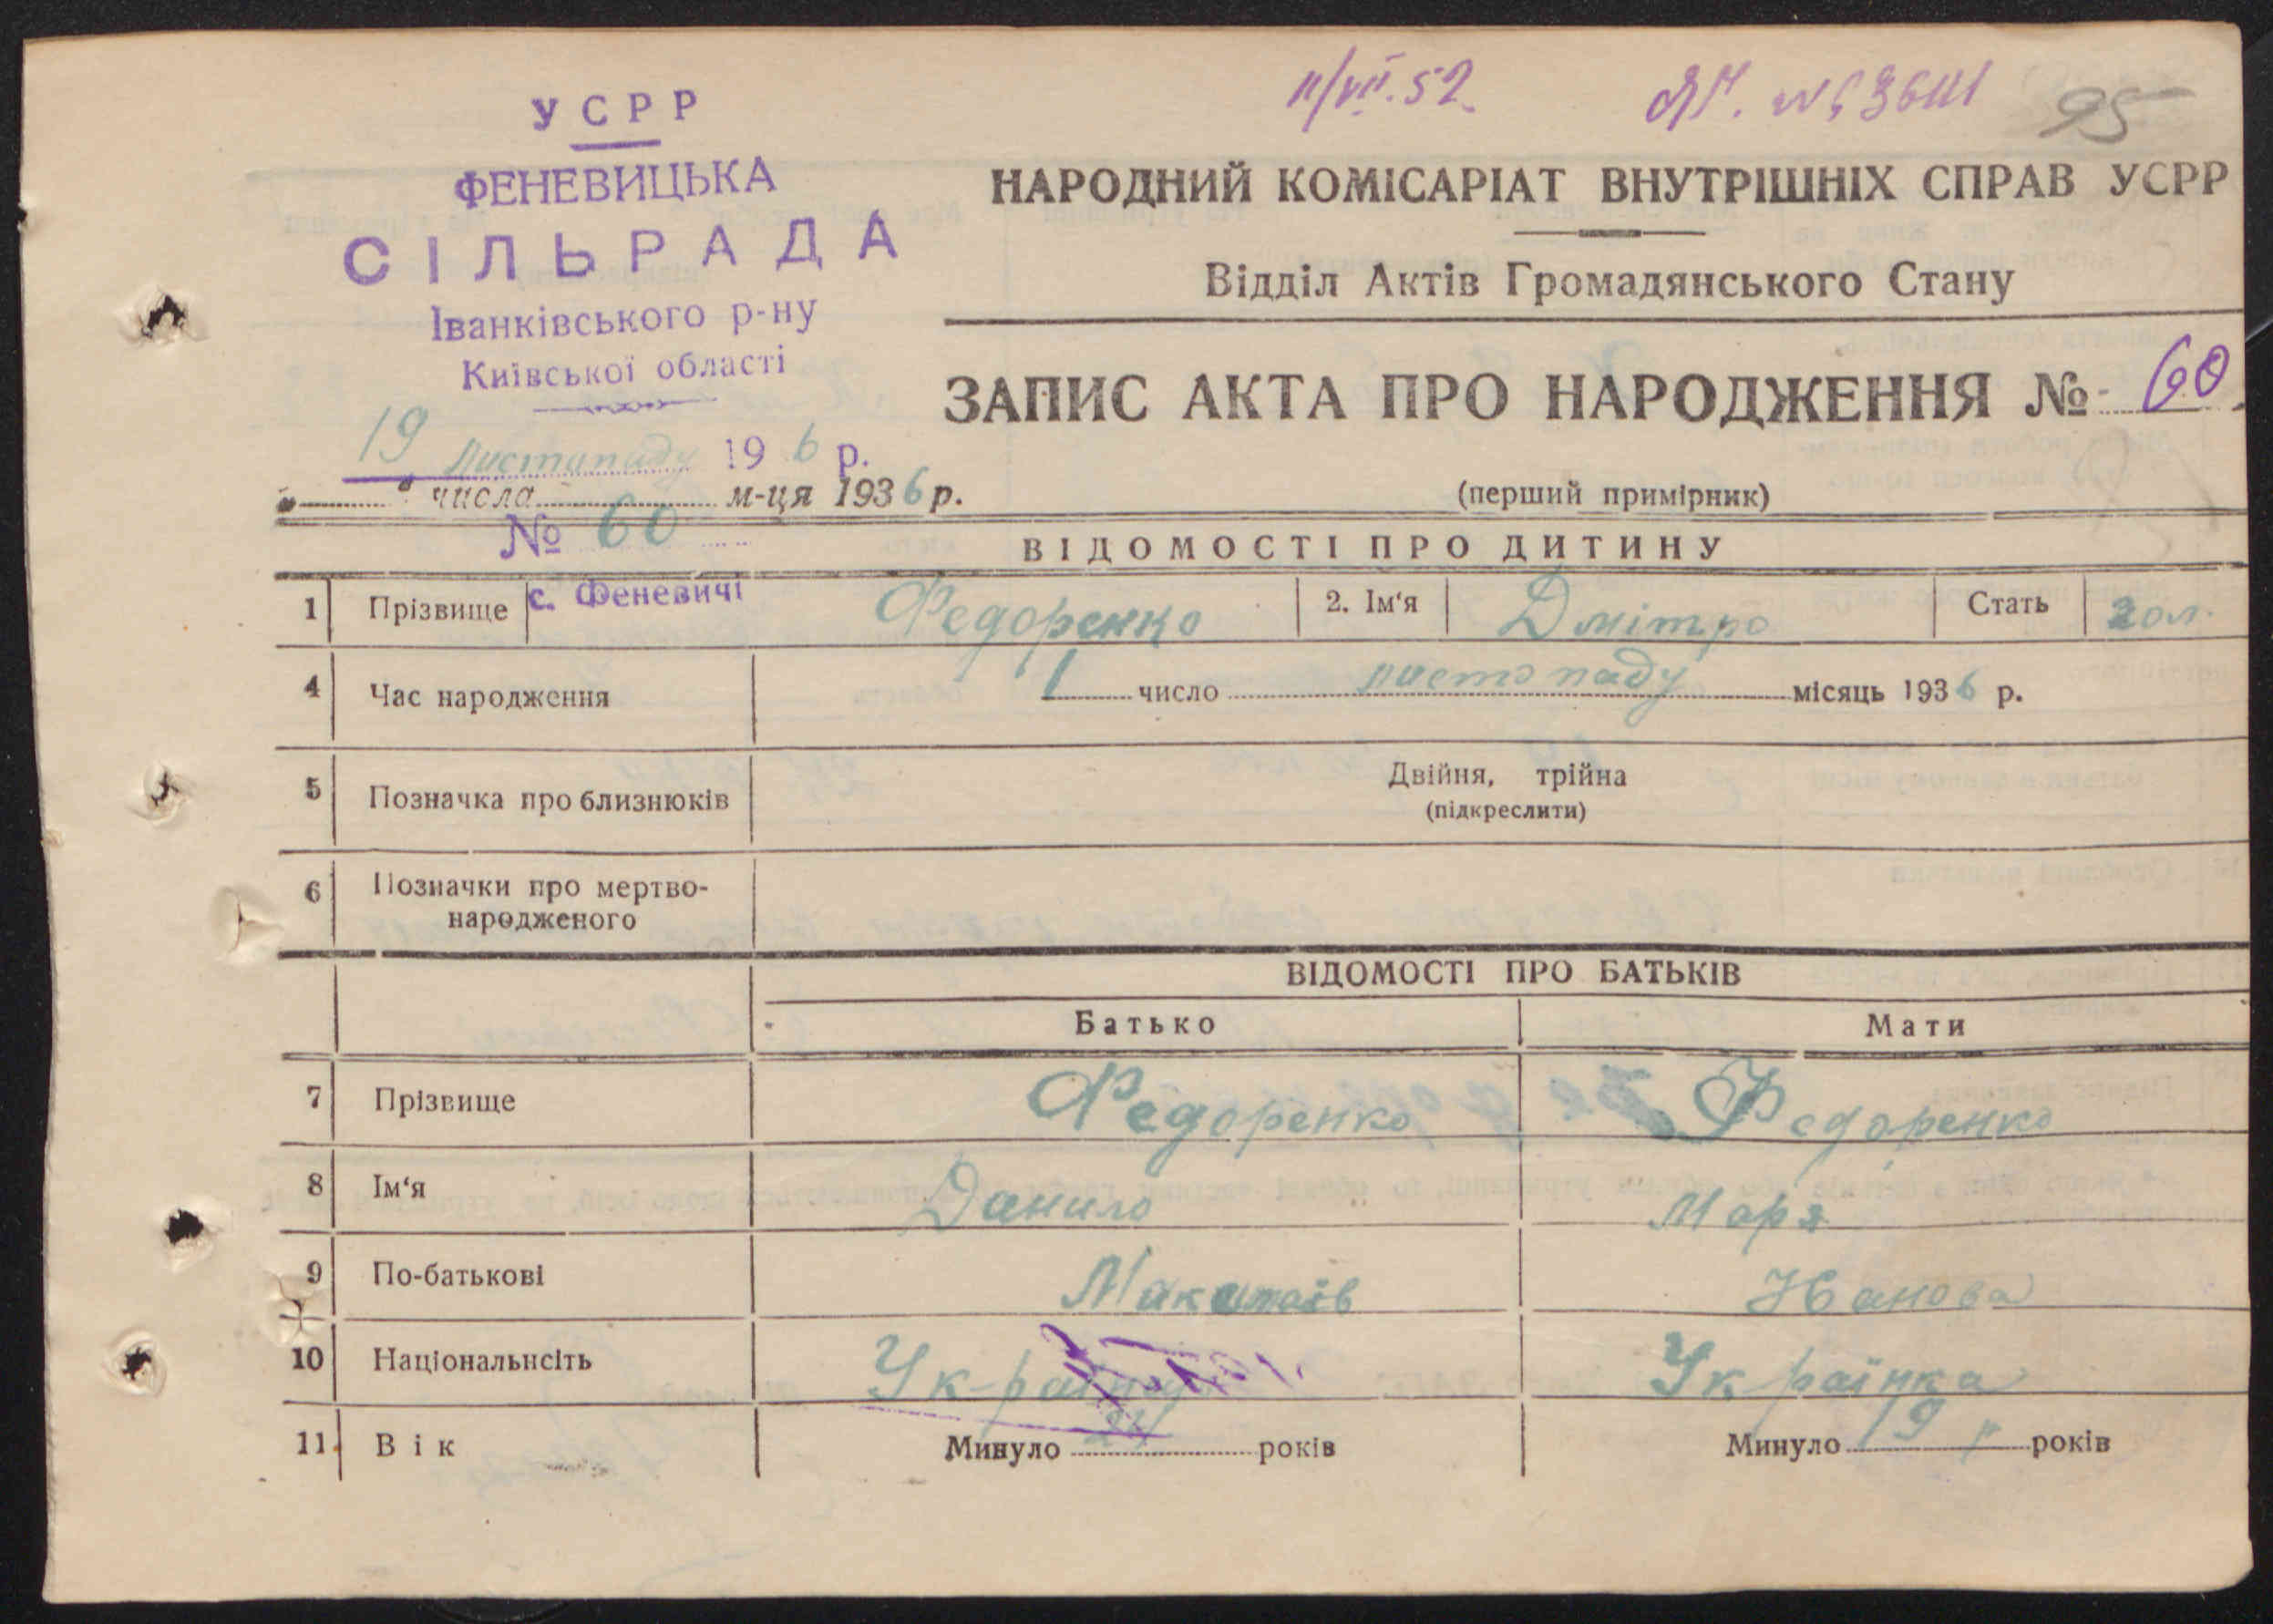 11/VII.52
95
УСРР
ФЕНЕВИЦЬКА
СІЛЬРАДА
Іванківського р-ну
Київської області
19 листопаду 19 6 р.
„ " числа м-ця 1936 р.
№ 60
с. Феневичі
НАРОДНИЙ КОМІСАРІАТ ВНУТРІШНІХ СПРАВ УСРР
Відділ Актів Громадянського Стану
ЗАПИС АКТА ПРО НАРОДЖЕННЯ № 60
(перший примірник)
ВІДОМОСТІ ПРО ДИТИНУ
1 Прізвище Федоренко 2. Ім'я Дмітро Стать чол.
4 Час народження 1 число листопаду місяць 1936 р.
5 Позначка про близнюків Двійня, трійна
(підкреслити)
6 Позначки про мертво-
народженого
ВІДОМОСТІ ПРО БАТЬКІВ
Батько Мати
7 Прізвище Федоренко Федоренко
8 Ім'я Данило Маря
9 По-батькові Іванова
10 Національнсіть Украінка
11. Вік Минуло 24 років Минуло 19 р років